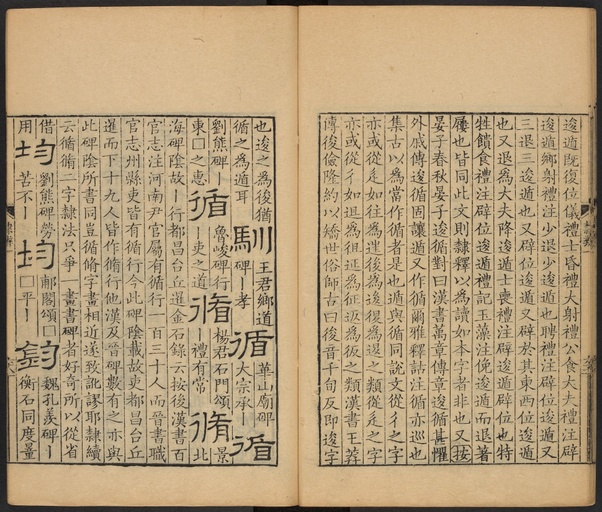 逡遁既復位儀禮士昏禮大射禮公食大夫禮注辟
逡遁鄉射禮注少退少逡遁也聘禮注辟位逡遁又
三退三逡遁也又辟位逡遁又辟於其東西位逡遁
也又退爲大夫降逡遁士喪禮注辟逡遁辟位也特
牲饋食禮注辟位逡遁禮記玉藻注俛逡遁而退著
屨也皆同此文則隸釋以爲讀如本字者非也又按
晏子春秋晏子逡循對曰漢書萬章傳章逡循甚懼
外戚傳逡循固讓遁又作循爾雅釋詁注循亦巡也
集古以爲當作循者是也遁與循同說文從彳之字
亦或從辵如往爲迋後爲𨒥復爲𨕛之類從辵之字
亦或從彳如退爲徂延爲征返爲彶之類漢書王莽
傳後儉隆約以矯世俗師古曰後音千旬反卽逡字
也逡之爲後猶馴王君鄉道華山廟碑
循之爲遁耳碑ー孝循大宗承ー循
劉熊碑ー魯峻碑行楊君石門頌景
東□之惠循ー吏之道脩ー禮有常脩北
海碑陰故ー行都昌台丘暹金石錄云按後漢書百
官志注河南尹官屬有循行一百三十人而晉書職
官志州縣吏皆有循行今此碑陰載故吏都昌台丘
暹而下十九人皆作脩行他漢及晉碑數有之亦與
此碑陰所書同豈循脩字畫相近遂致訛謬耶隸續
云循脩二字隸法只爭一畫書碑者好奇所以從省
借均劉熊碑勞郙閣頌□魏孔羨碑ー
用均苦不ー均□平ー鈞衡石同度量